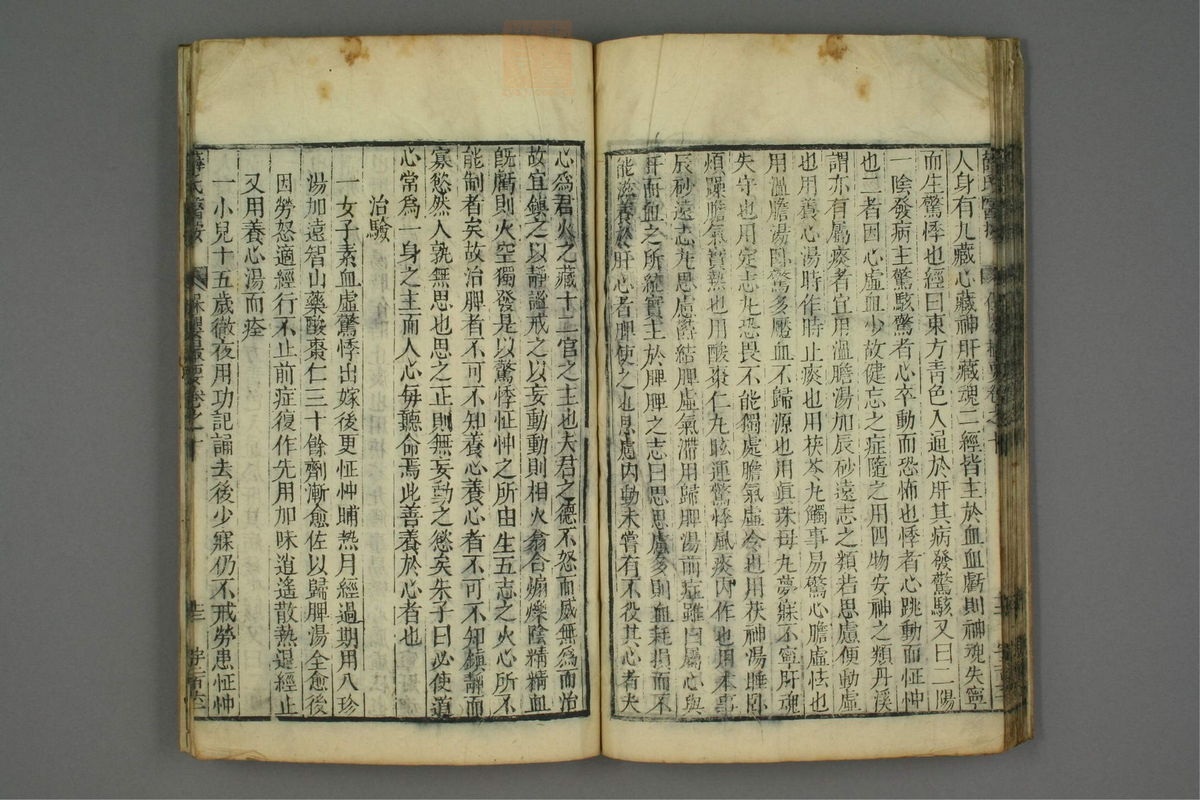 人身有九藏心藏神肝藏魂二經皆主於血血虧則神魂失寧
而生驚悸也經曰東方青色入通於肝其病發驚駭又曰二陽
一陰發病主驚駭驚者心卒動而恐怖也悸者心跳動而怔忡
也二者因心虛血少故健忘之症隨之用四物安神之類丹溪
謂亦有屬痰者宜用溫膽湯加辰砂遠志之類若思慮便動虛
也用養心湯時作時止痰也用茯苓丸觸事易驚心膽虛怯也
用溫膽湯臥驚多魘血不歸源也用眞珠母丸夢寐不寧肝魂
失守也用定志丸恐畏不能獨處膽氣虛冷也用茯神湯睡臥
煩躁膽氣實熱也用酸棗仁丸眩運驚悸風痰內作也用本事
辰砂遠志丸思慮鬱結脾虛氣滯用歸脾湯前症雖曰屬心與
肝而血之所統實主於脾脾之志曰思思慮多則血耗損而不
能滋養於肝心者脾使之也思慮內動未嘗有不役其心者夫
心爲君火之藏十二官之主也夫君之德不怒而威無爲而治
故宜鎮之以靜謐戒之以妄動動則相火翕合煽爍陰精精血
旣虧則火空獨發是以驚悸怔忡之所由生五志之火心所不
能制者矣故治脾者不可不知養心養心者不可不知鎮靜而
寡慾然人孰無思也思之正則無妄動之慾矣朱子曰必使道
心常爲一身之主而人心每聽命焉此善養於心者也
治驗
一女子素血虛驚悸出嫁後更怔忡晡熱月經過期用八珍
湯加遠智山藥酸棗仁三十餘劑漸愈佐以歸脾湯全愈後
因勞怒適經行不止前症復作先用加味逍遙散熱退經止
又用養心湯而痊
一小兒十五歲徹夜用功記誦去後少寐仍不戒勞患怔忡
薛氏醫按
保嬰撮要卷之十